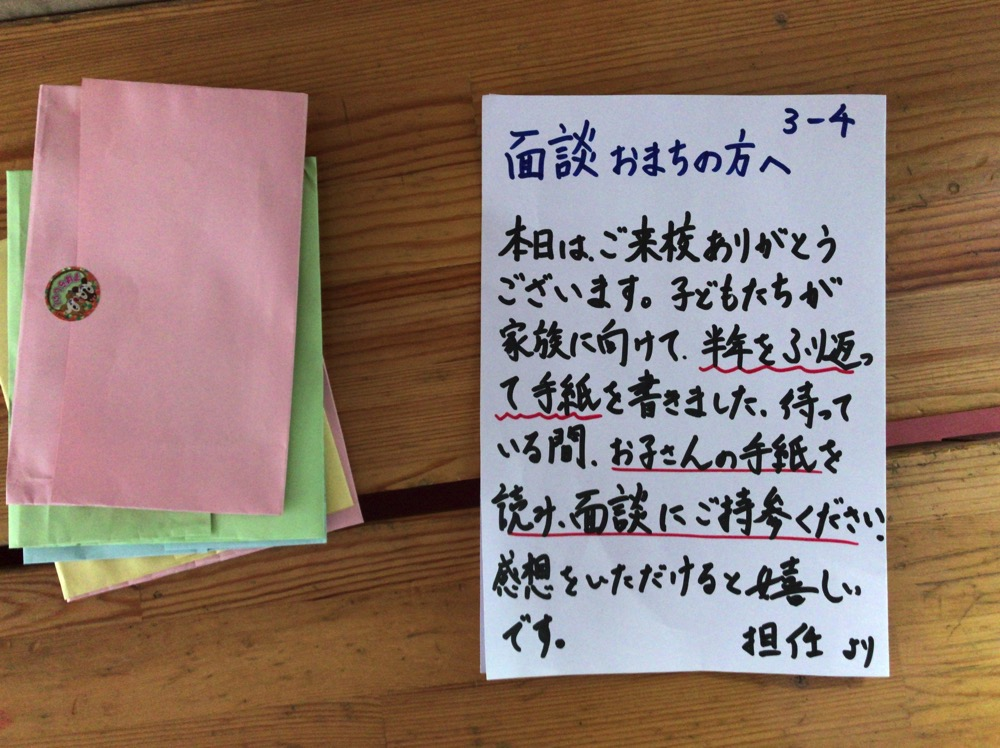 3-4
面談 おまちの方へ
本日は、ご来校ありがとう
ございます。子どもたちが
家族に向けて、半年をふり返っ
て手紙を書きました、待って
いる間、お子さんの手紙を
読み、面談にご持参ください。
感想をいただけると嬉しい
です。 担任 より